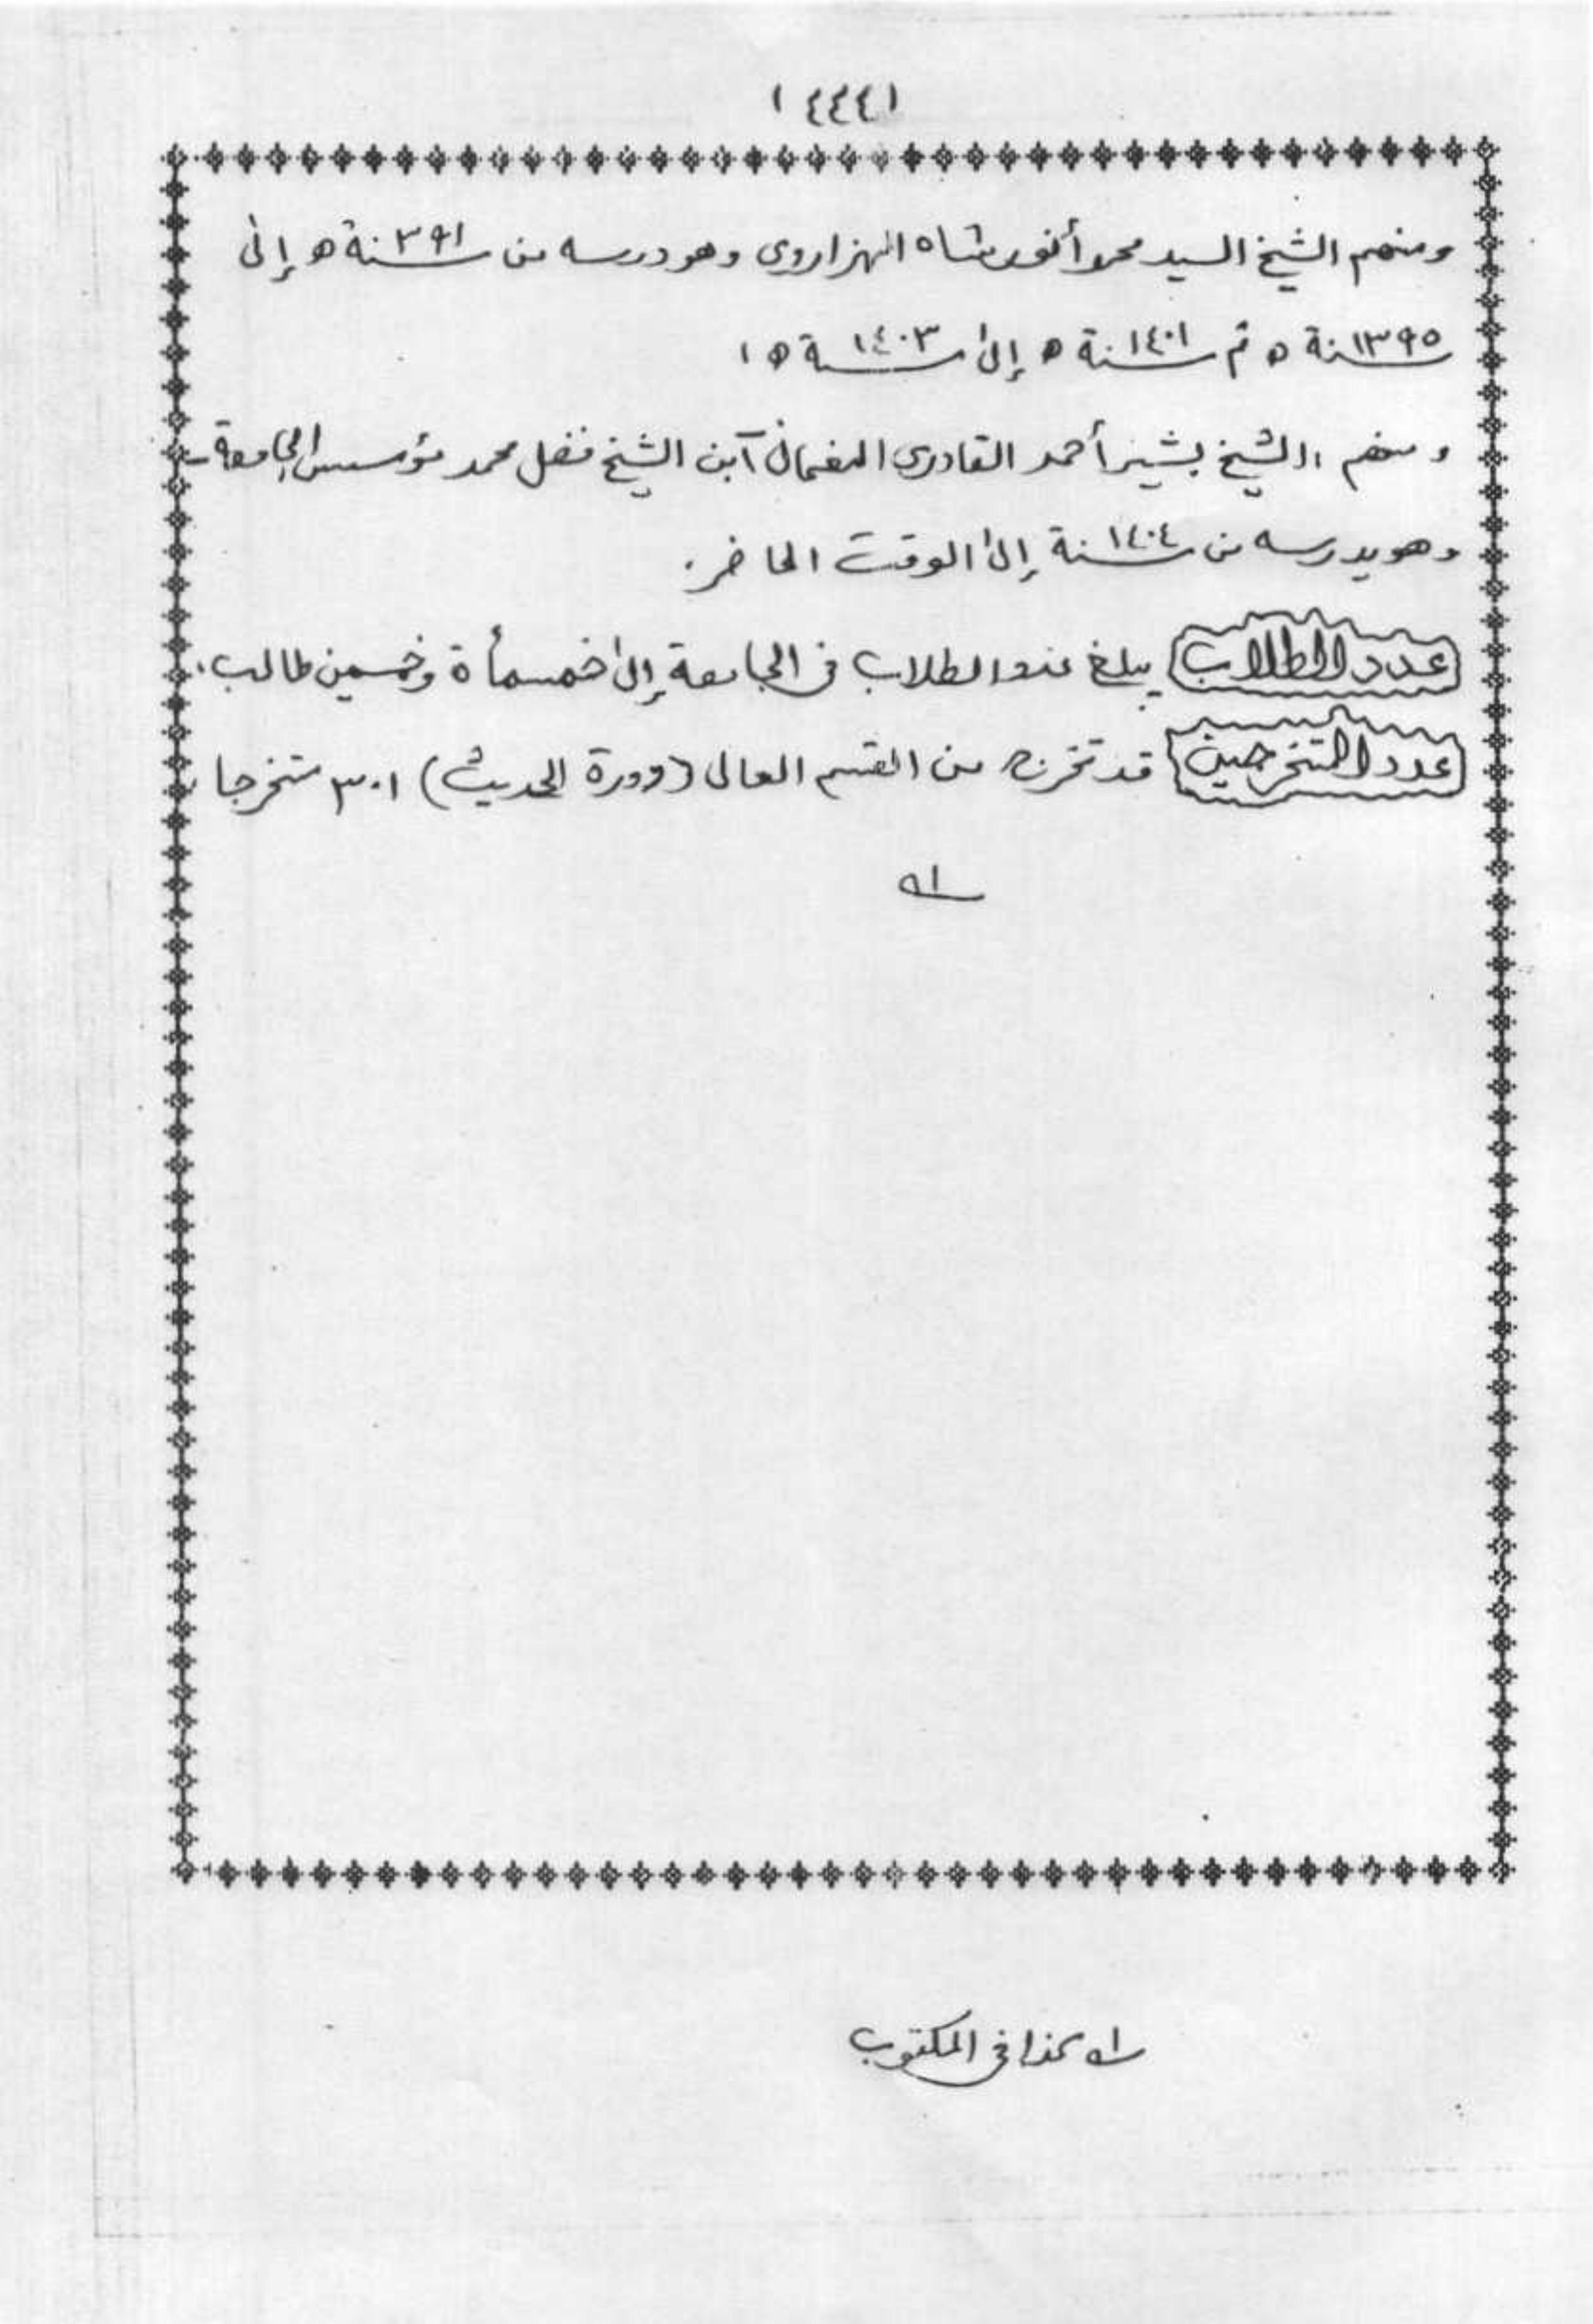 (٤٤٤)
ومنهم الشيخ السيد محمد أنور شاه الهزاروى وهو درسه من سنة ١٣٩١ ه إلى
سنة ١٣٩٥ ه ثم سنة ١٤٠١ ه إلى سنة ١٤٠٣ ه ا
ومنهم الشيخ بشير أحمد القادرى ابن الشيخ فضل محمد مؤسس الجامعة -
وهو يدرسه من سنة ١٤٠٤ إلى الوقت الحاضر.
عدد الطلاب يبلغ عدد الطلاب فى الجامعة إلى خمسمأة وخمسين طالب.
عدد المتخرجين قد تخرج من القسم العالى (دورة الحديث) ٣٠١ متخرجا
اه
اه كذا فى المكتوب